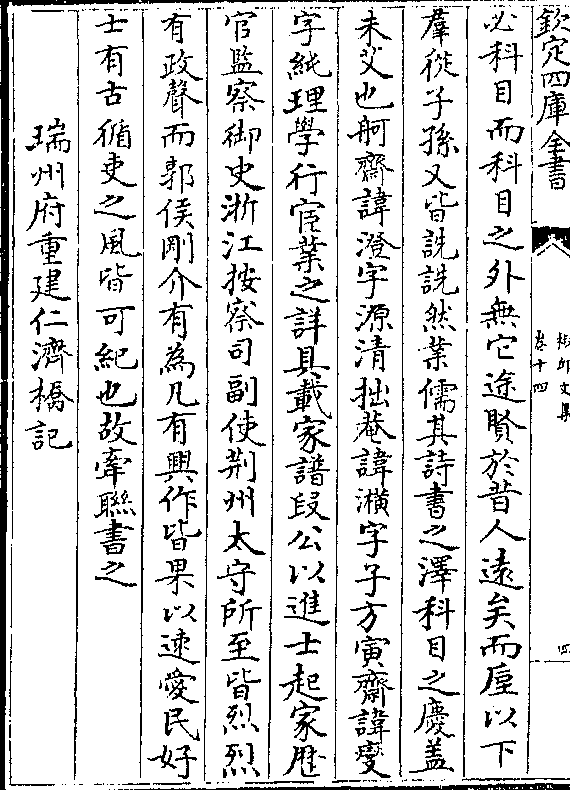 欽定四庫全書
椒邱文集
卷十四
四
必科目而科目之外無它途賢於昔人遠矣而以下
羣從子孫又皆詵詵然業儒其詩書之澤科目之慶蓋
未艾也舸齋諱澄字源清拙菴諱字子方寅齋諱燮
字純理學行宦業之詳具載家譜段公以進士起家歴
官監察御史浙江按察司副使荆州太守所至皆烈烈
有政聲而郭侯剛介有為凡有興作皆果以速愛民好
士有古循吏之風皆可紀也故牽聯書之
瑞州府重建仁濟橋記